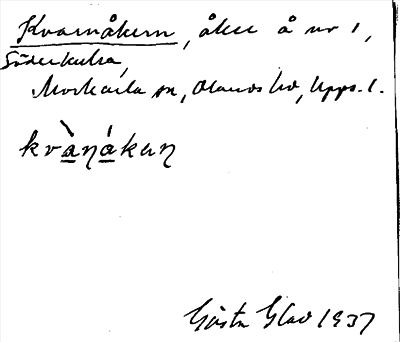 Kvarnåkern, åker å nr 1,
Söderkulra,
Morkarla sn, Olands hd, Upps. l.
kvànákeɳ
Gösta Glad 1937